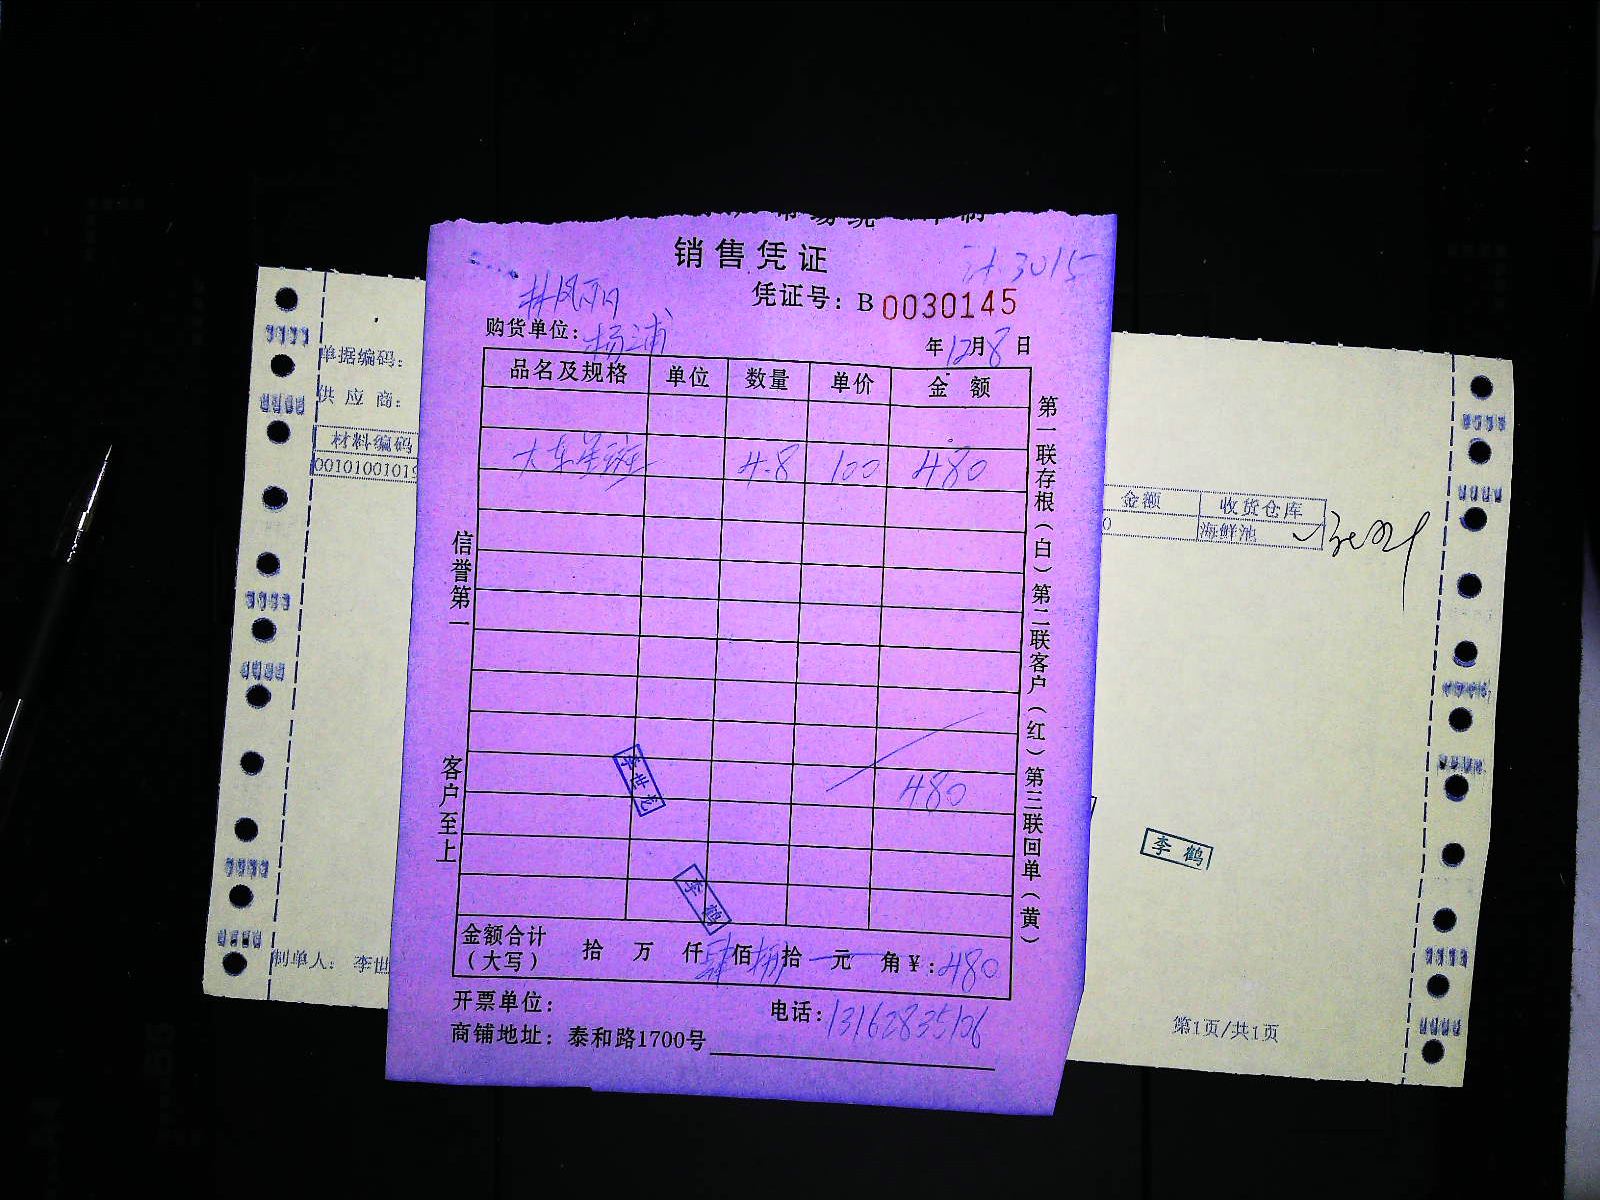 销售凭证
计.3015
凭证号：B 0030145
购货单位：杨浦
年12月8日
品名及规格 单位 数量 单价 金额
大东星斑 4.8 100 480
480
信誉第一
客户至上
第一联存根（白）第二联客户（红）第三联回单（黄）
李鹤
金额合计（大写） 拾 万 仟肆佰捌拾 元 角￥：480
开票单位：
电话：13162835106
商铺地址：泰和路1700号
单据编码：
供应商：
材料编码
0010100101
制单人：李世
金额 收货仓库
0 海鲜池
李鹤
第1页/共1页